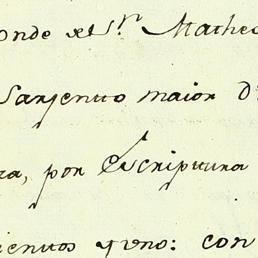 onde el S.r Matheo
Sarjento maior D
ra, por Escriptura
ientos y uno: con